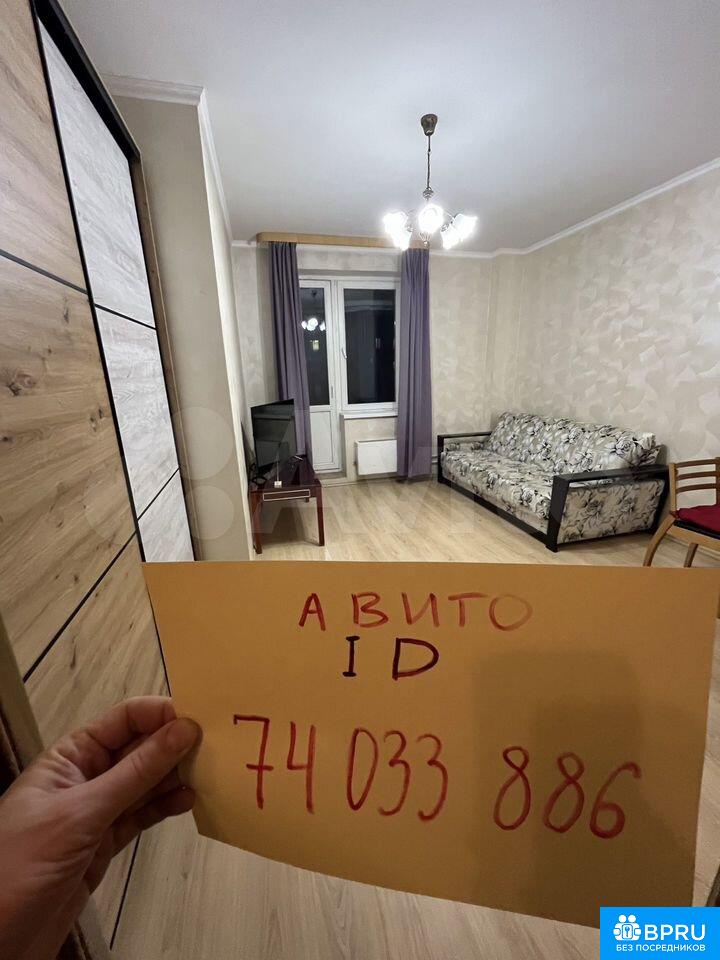 АВИТО
ID
74 033 886
BPRU
БЕЗ ПОСРЕДНИКОВ